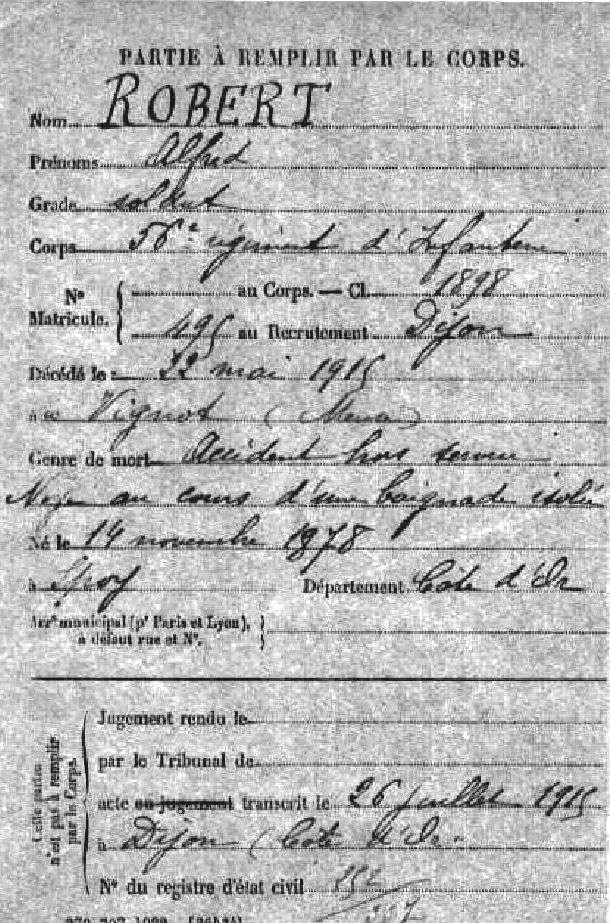 PARTIE À REMPLIR PAR LE CORPS.
Nom ROBERT
Prénoms Alfred
Grade soldat
Corps 56e régiment d'Infanterie
Nº Matricule. au Corps. — Cl. 1898
495 au Recrutement Dijon
Décédé le 22 mai 1915
à Vignot (Meuse)
Genre de mort Accident hors service
Noyé au cours d'une baignade isolée
Né le 14 novembre 1878
à Spoy Département Côte d'Or
Arrt municipal (pr Paris et Lyon),
à défaut rue et Nº.
Cette partie n'est pas à remplir par le Corps.
Jugement rendu le
par le Tribunal de
acte ou jugement transcrit le 26 juillet 1915
à Dijon (Côte d'Or.
Nº du registre d'état civil